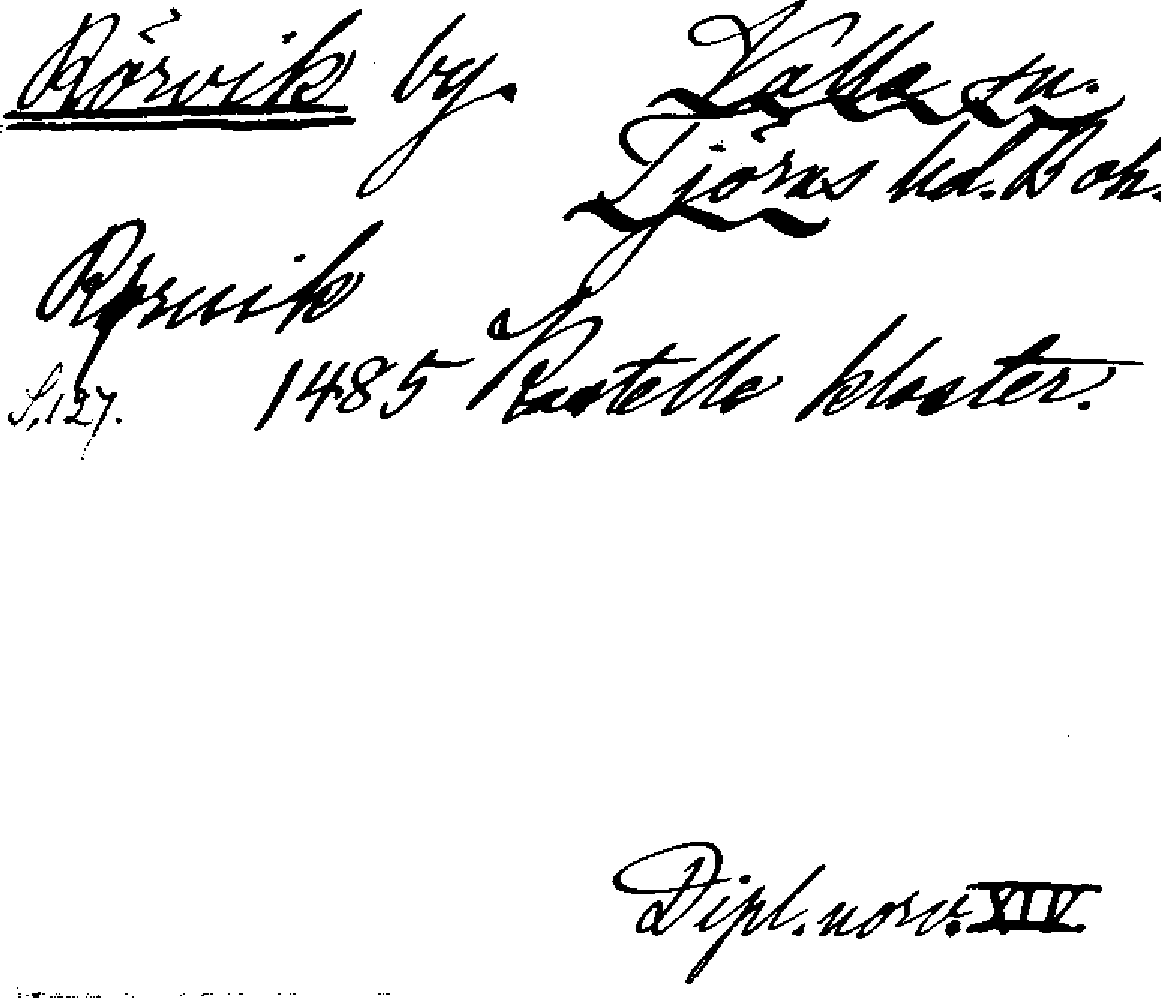 Rörvik by. Valla sn.
Tjörns hd. Boh.
Rørvik
S. 127. 1485 Kastelle kloster.
Dipl. norv. XIV